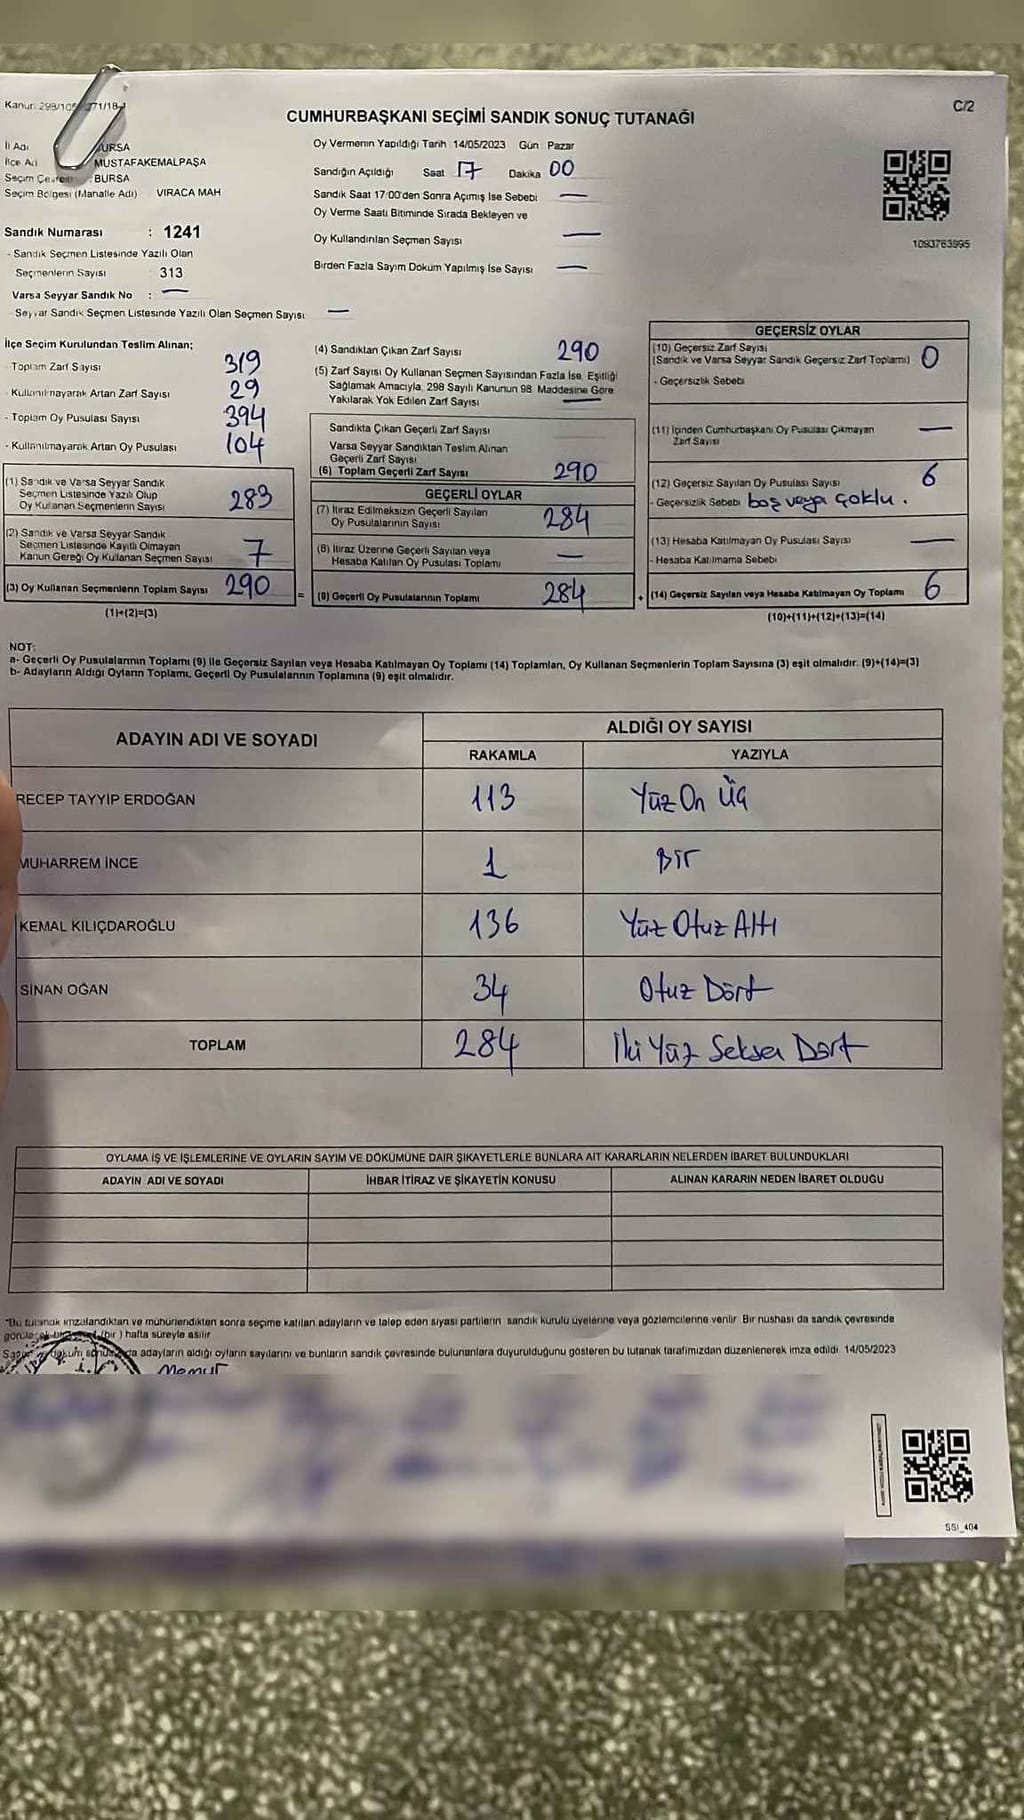 Kanun: 298/105 271/18-1
C/2
CUMHURBAŞKANI SEÇİMİ SANDIK SONUÇ TUTANAĞI
İl Adı BURSA
İlçe Adı MUSTAFAKEMALPAŞA
Seçim Çevresi : BURSA
Seçim Bölgesi (Mahalle Adı) VIRACA MAH
Sandık Numarası : 1241
- Sandık Seçmen Listesinde Yazılı Olan
Seçmenlerin Sayısı : 313
Varsa Seyyar Sandık No : —
- Seyyar Sandık Seçmen Listesinde Yazılı Olan Seçmen Sayısı —
Oy Vermenin Yapıldığı Tarih : 14/05/2023 Gün : Pazar
Sandığın Açıldığı Saat 17 Dakika 00
Sandık Saat 17:00'den Sonra Açılmış İse Sebebi —
Oy Verme Saati Bitiminde Sırada Bekleyen ve
Oy Kullandırılan Seçmen Sayısı —
Birden Fazla Sayım Döküm Yapılmış İse Sayısı —
1093763995
İlçe Seçim Kurulundan Teslim Alınan;
- Toplam Zarf Sayısı 319
- Kullanılmayarak Artan Zarf Sayısı 29
- Toplam Oy Pusulası Sayısı 394
- Kullanılmayarak Artan Oy Pusulası 104
(1) Sandık ve Varsa Seyyar Sandık
Seçmen Listesinde Yazılı Olup
Oy Kullanan Seçmenlerin Sayısı 283
(2) Sandık ve Varsa Seyyar Sandık
Seçmen Listesinde Kayıtlı Olmayan
Kanun Gereği Oy Kullanan Seçmen Sayısı 7
(3) Oy Kullanan Seçmenlerin Toplam Sayısı 290
(1)+(2)=(3)
(4) Sandıktan Çıkan Zarf Sayısı 290
(5) Zarf Sayısı Oy Kullanan Seçmen Sayısından Fazla İse, Eşitliği
Sağlamak Amacıyla, 298 Sayılı Kanunun 98. Maddesine Göre
Yakılarak Yok Edilen Zarf Sayısı —
Sandıkta Çıkan Geçerli Zarf Sayısı
Varsa Seyyar Sandıktan Teslim Alınan
Geçerli Zarf Sayısı
(6) Toplam Geçerli Zarf Sayısı 290
GEÇERLİ OYLAR
(7) İtiraz Edilmeksizin Geçerli Sayılan
Oy Pusulalarının Sayısı 284
(8) İtiraz Üzerine Geçerli Sayılan veya
Hesaba Katılan Oy Pusulası Toplamı —
= (9) Geçerli Oy Pusulalarının Toplamı 284
GEÇERSİZ OYLAR
(10) Geçersiz Zarf Sayısı
(Sandık ve Varsa Seyyar Sandık Geçersiz Zarf Toplamı) 0
- Geçersizlik Sebebi
(11) İçinden Cumhurbaşkanı Oy Pusulası Çıkmayan
Zarf Sayısı —
(12) Geçersiz Sayılan Oy Pusulası Sayısı 6
- Geçersizlik Sebebi boş veya çoklu.
(13) Hesaba Katılmayan Oy Pusulası Sayısı —
- Hesaba Katılmama Sebebi
+ (14) Geçersiz Sayılan veya Hesaba Katılmayan Oy Toplamı 6
(10)+(11)+(12)+(13)=(14)
NOT:
a- Geçerli Oy Pusulalarının Toplamı (9) ile Geçersiz Sayılan veya Hesaba Katılmayan Oy Toplamı (14) Toplamları, Oy Kullanan Seçmenlerin Toplam Sayısına (3) eşit olmalıdır. (9)+(14)=(3)
b- Adayların Aldığı Oyların Toplamı, Geçerli Oy Pusulalarının Toplamına (9) eşit olmalıdır.
ADAYIN ADI VE SOYADI ALDIĞI OY SAYISI
RAKAMLA YAZIYLA
RECEP TAYYİP ERDOĞAN 113 Yüz On Üç
MUHARREM İNCE 1 Bir
KEMAL KILIÇDAROĞLU 136 Yüz Otuz Altı
SİNAN OĞAN 34 Otuz Dört
TOPLAM 284 İki Yüz Seksen Dört
OYLAMA İŞ VE İŞLEMLERİNE VE OYLARIN SAYIM VE DÖKÜMÜNE DAİR ŞİKAYETLERLE BUNLARA AİT KARARLARIN NELERDEN İBARET BULUNDUKLARI
ADAYIN ADI VE SOYADI İHBAR İTİRAZ VE ŞİKAYETİN KONUSU ALINAN KARARIN NEDEN İBARET OLDUĞU
*Bu tutanak imzalandıktan ve mühürlendikten sonra seçime katılan adayların ve talep eden siyasi partilerin sandık kurulu üyelerine veya gözlemcilerine verilir. Bir nüshası da sandık çevresinde
(bir) hafta süreyle asılır
adayların aldığı oyların sayılarını ve bunların sandık çevresinde bulunanlara duyurulduğunu gösteren bu tutanak tarafımızdan düzenlenerek imza edildi. 14/05/2023
Memur
SSI_404